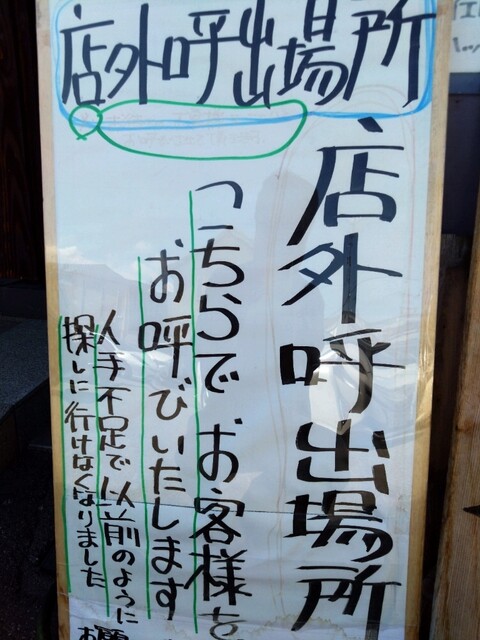 店外呼出場所
店外呼出場所
こちらでお客様を
お呼びいたします
人手不足で以前のように
探しに行けなくなりました